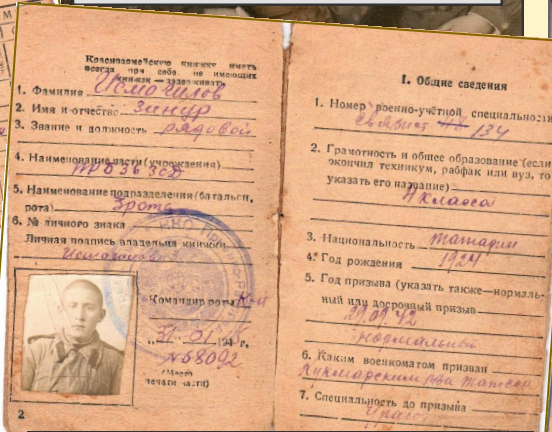 Красноармейскую книжку иметь
всегда при себе. не имеющих
книжек — задерживать
1. Фамилия Исмагилов
2. Имя и отчество Зинур
3. Звание и должность рядовой
4. Наименование части (учреждения)
363 сд
5. Наименование подразделения (батальон,
рота) 3 рота
6. № личного знака
Личная подпись владельца книжки
Командир роты
31 01
№ 58092
(Место
печати части)
2
I. Общие сведения
1. Номер военно-учётной специальности
связист 134
2. Грамотность и общее образование (если
окончил техникум, рабфак или вуз, то
указать его название)
4 класса
3. Национальность татарин
4. Год рождения 1924
5. Год призыва (указать также—нормаль-
ный или досрочный призыв
29.09.42
нормальный
6. Каким военкоматом призван
Кукмарским рвк
7. Специальность до призыва